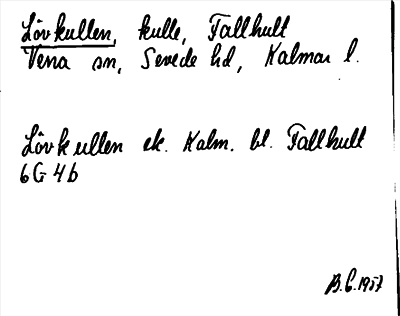 Lövkullen, kulle, Fallhult
Vena sn, Sevede hd, Kalmar l.
Lövkullen ek. Kalm. bl. Fallhult
6G 4b
B.C. 1957